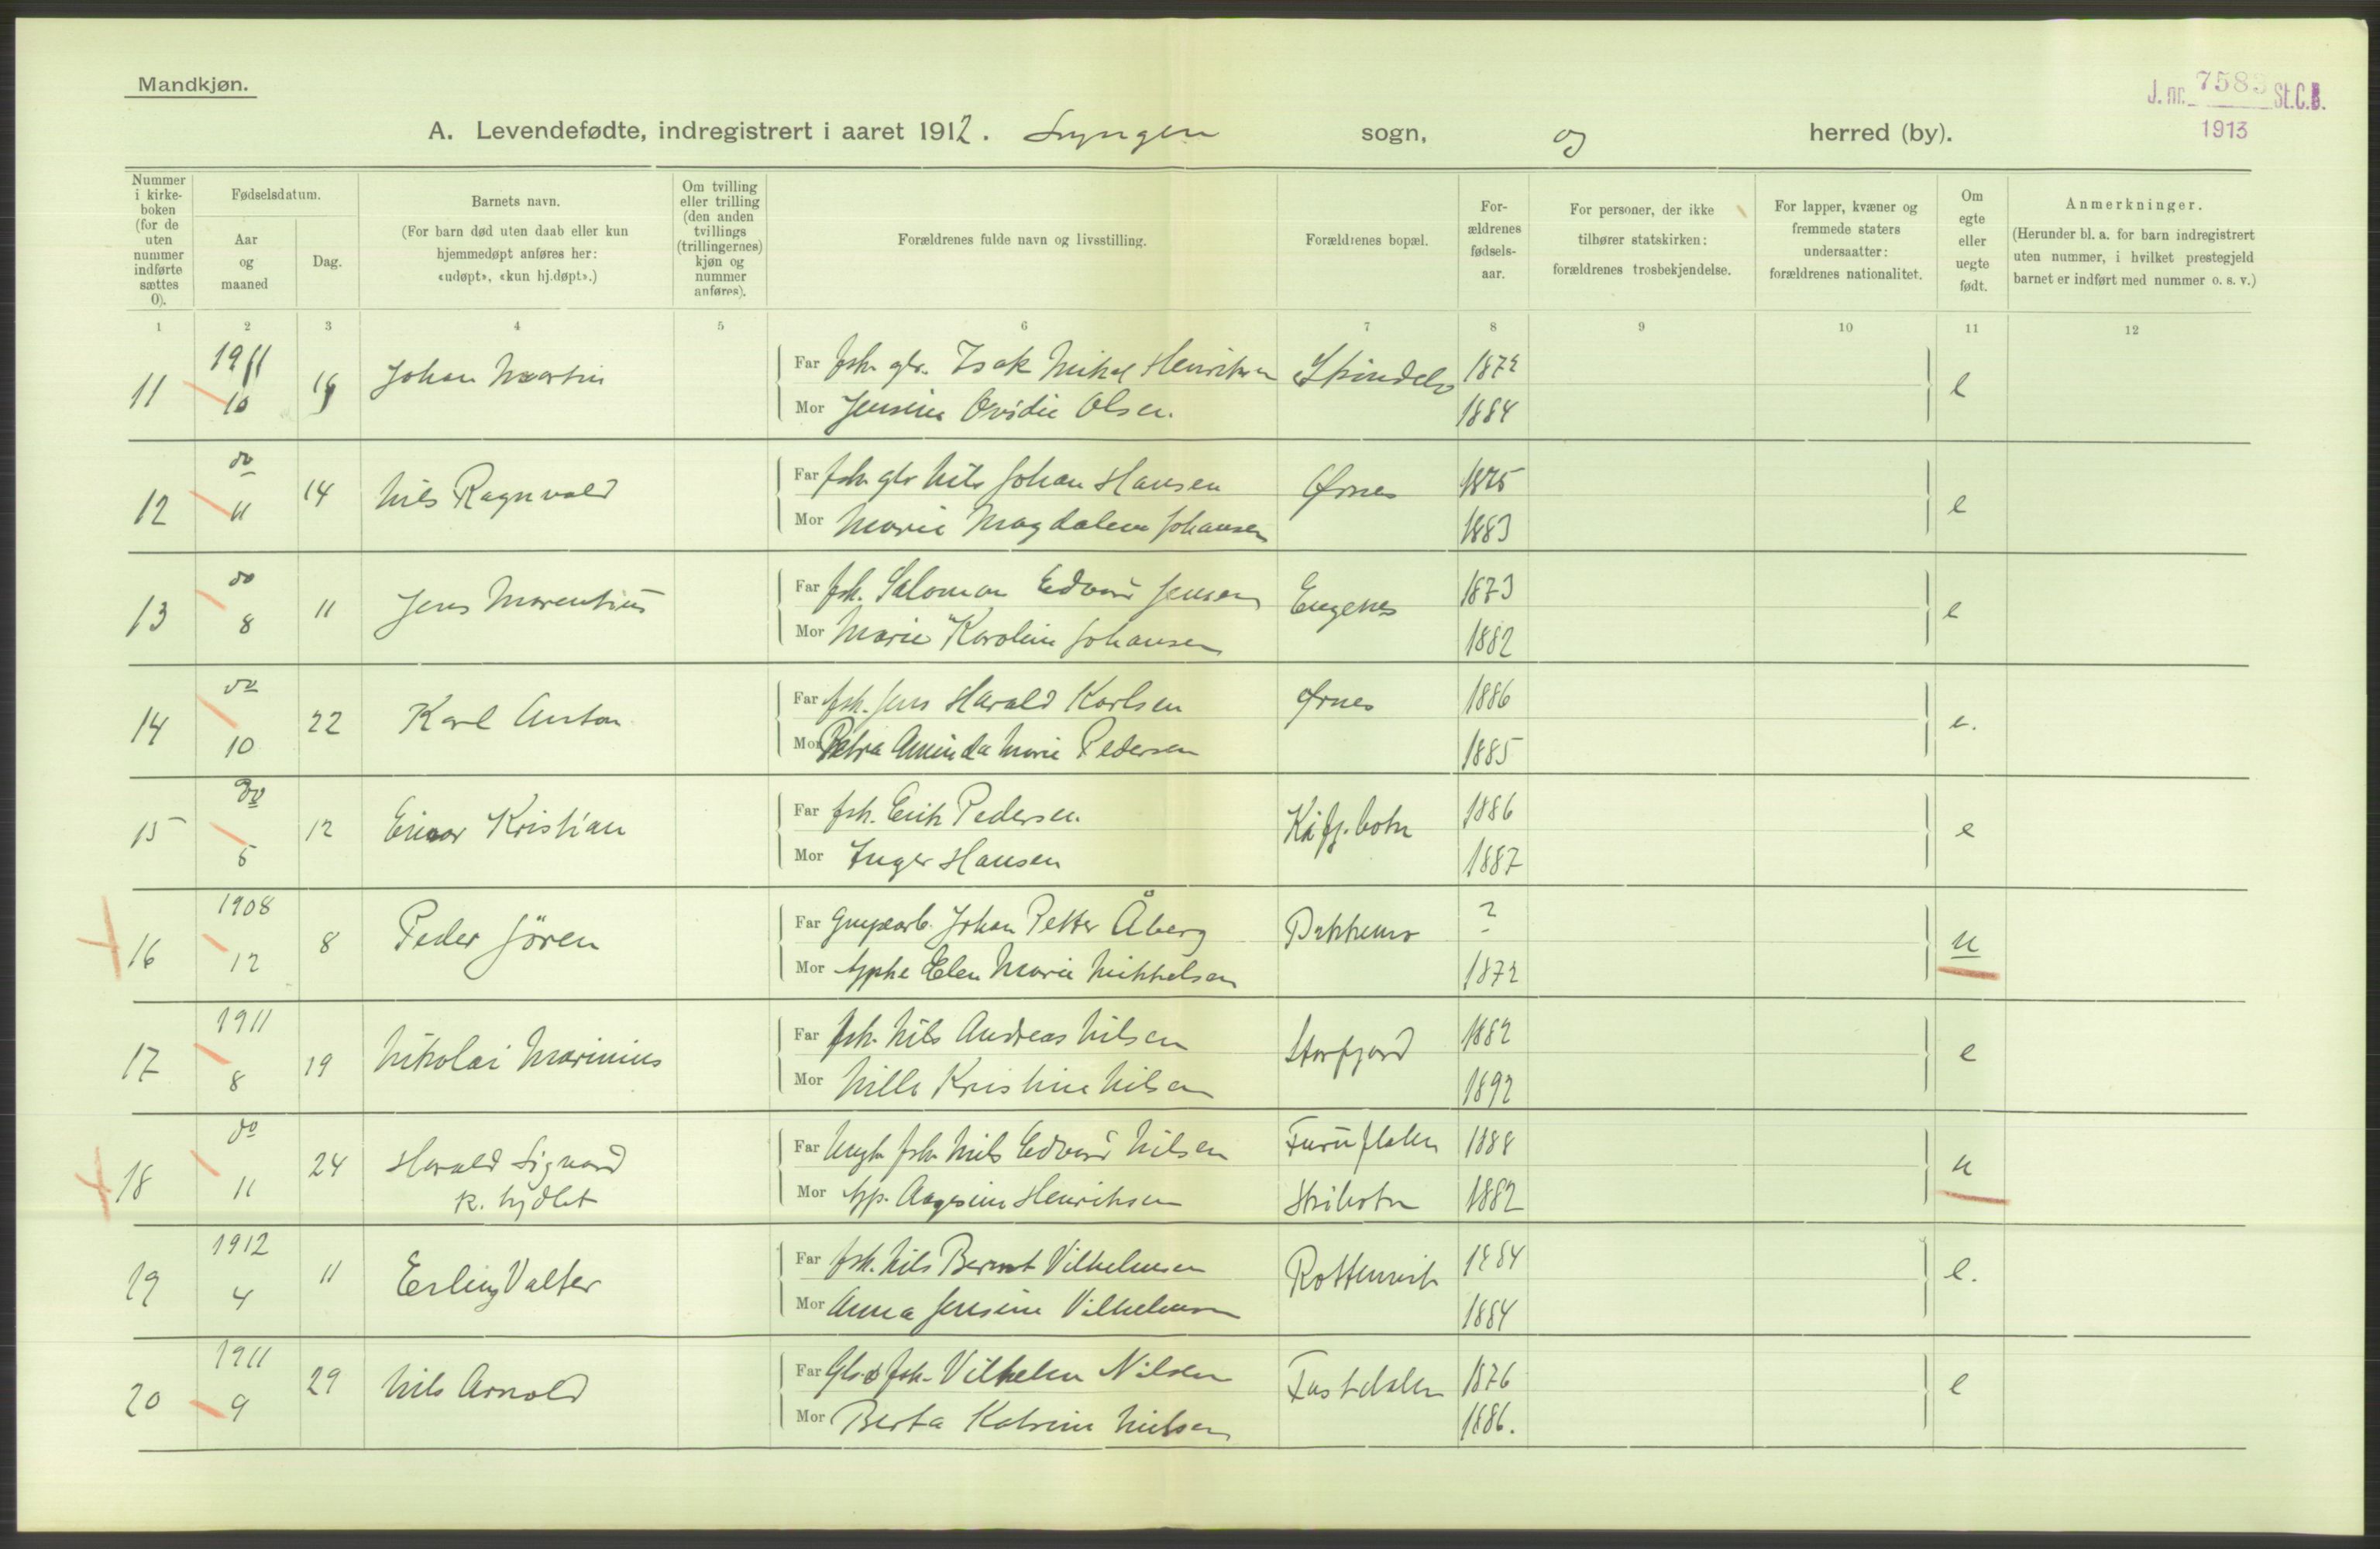 Mandkjøn.
J. nr. 7583 St.C.B.
1913
A. Levendefødte, indregistrert i aaret 1912. Lyngen sogn, og herred (by).
Nummer i kirke-boken (for de uten nummer indførte sættes 0).
Fødselsdatum.
Aar og maaned
Dag.
Barnets navn.
(For barn død uten daab eller kun hjemmedøpt anføres her: «udøpt», «kun hj.døpt».)
Om tvilling eller trilling (den anden tvillings (trillingernes) kjøn og nummer anføres).
Forældrenes fulde navn og livsstilling.
Forældrenes bopæl.
For-ældrenes fødsels-aar.
For personer, der ikke tilhører statskirken: forældrenes trosbekjendelse.
For lapper, kvæner og fremmede staters undersaatter: forældrenes nationalitet.
Om egte eller uegte født.
Anmerkninger.
(Herunder bl. a. for barn indregistrert uten nummer, i hvilket prestegjeld barnet er indført med nummer o. s. v.)
1 2 3 4 5 6 7 8 9 10 11 12
11 1911 10 Johan Martin Far fsk. gbr. Isak Mikal Henriksen 1872 e
Mor Jensine Ovidie Olsen. 1884
12 do 11 14 Nils Ragnvald Far fsk. gbr Nils Johan Hansen Ørnes 1875 e
Mor Marie Magdalena Johansen 1883
13 do 8 11 Jens Marentius Far fsk. Salomon Edvard Jensen Engenes 1873 e
Mor Marie Karoline Johansen 1882
14 do 10 22 Karl Anton Far fsk. Jens Harald Karlsen Ørnes 1886 e.
Mor Petra Aminda Marie Pedersen 1885
15 do 5 12 Einar Kristian Far fsk. Erik Pedersen. Kåfj.botn 1886 e
Mor Inger Hansen 1887
16 1908 12 8 Peder Jören Far Johan Petter Åberg ? u
Mor Elen Marie Mikkelsen 1872
17 1911 8 19 Nikolai Marinius Far fsk. Nils Andreas Nilsen Storfjord 1882 e
Mor Nille Kristine Nilsen 1892
18 do 11 24 Harald Sigvard Far Ungk. fsk. Nils Edvard Nilsen Furuflaten 1888 u
k. hjdbt Mor Aagesine Henriksen Skibotn 1882
19 1912 4 11 Erling Valter Far fsk. Nils Bernt Vilhelmsen Rottenvik 1884 e.
Mor Anna Jensine Vilhelmsen 1884
20 1911 9 29 Nils Arnold Far Gbr. o fsk. Vilhelm Nilsen Fastdalen 1876 e
Mor Berta Katrine Nilsen 1886.